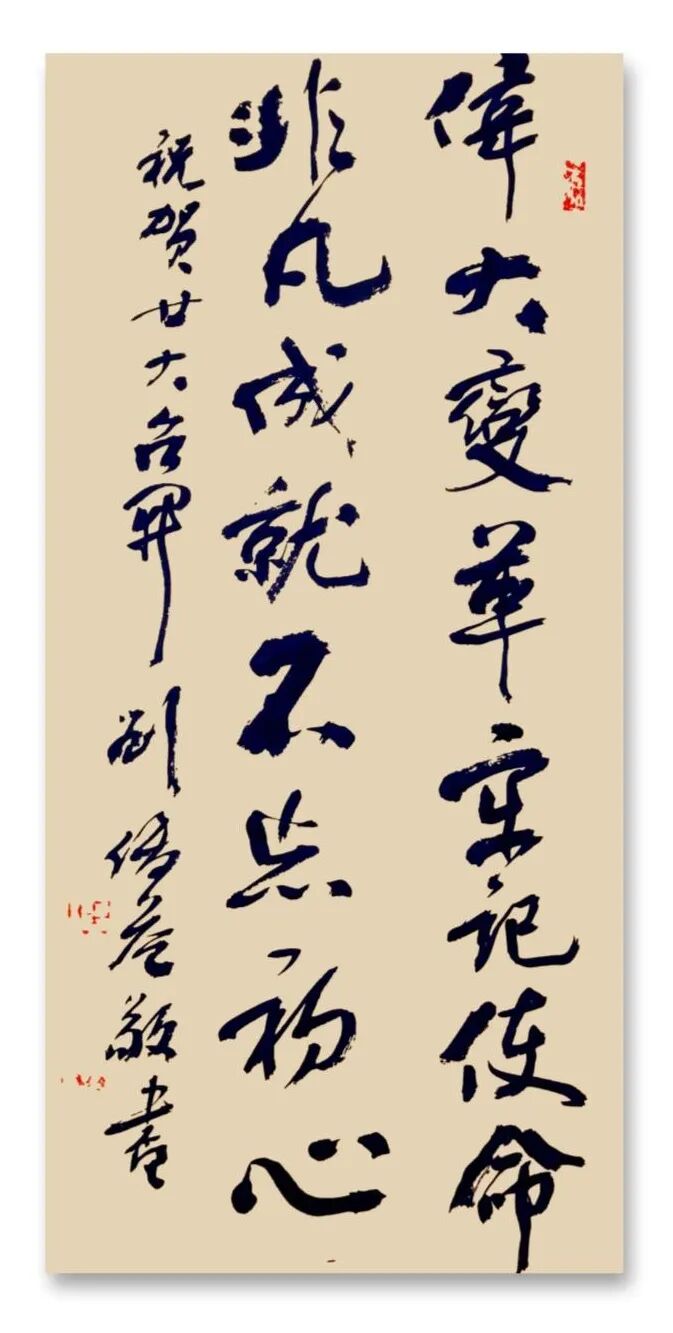 偉大變革牢記使命
非凡成就不忘初心
祝賀廿大召開 劉敬書